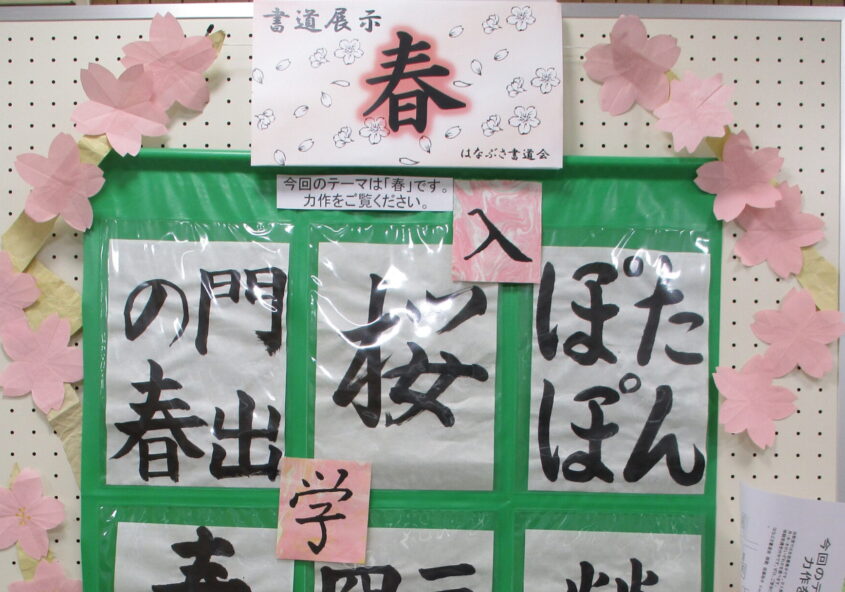 書道展示
春
はなぶさ書道会
今回のテーマは「春」です。
力作をご覧ください。
入
たん
ぽぽ
桜
門出
の春
学
今回の
力作